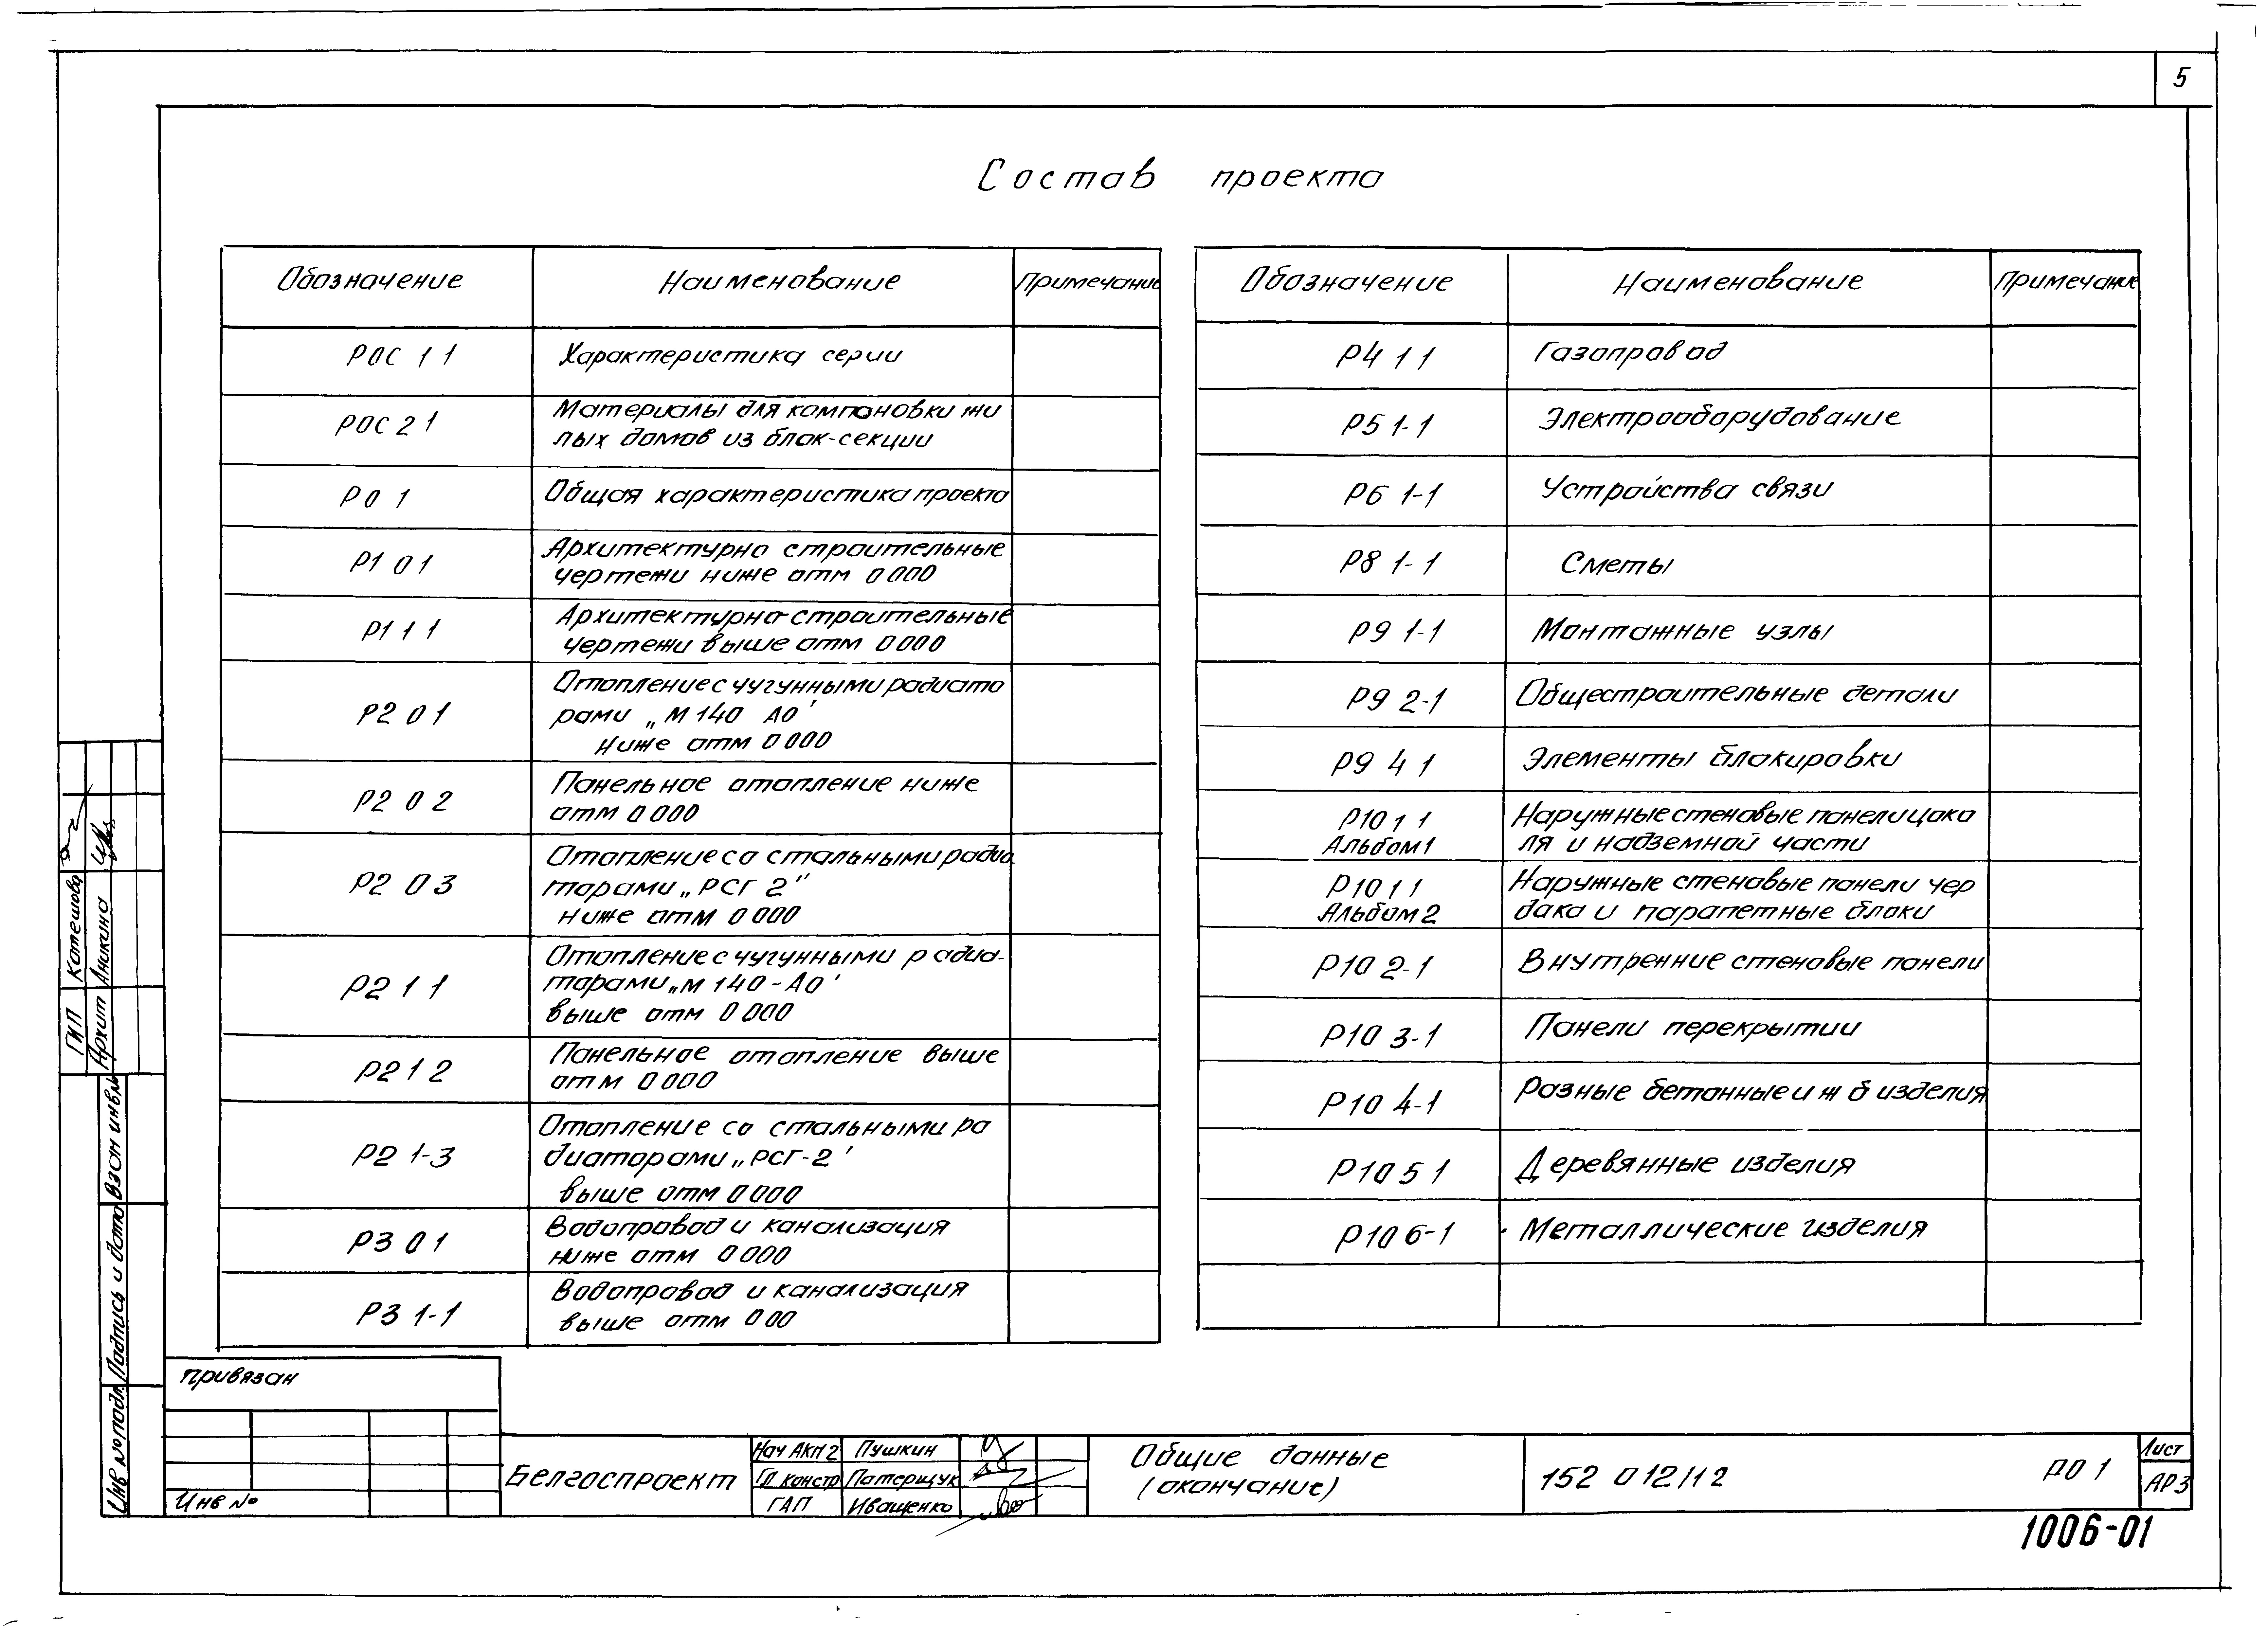 5
Состав проекта
Обозначение Наименование Примечание
РОС 1 1 Характеристика серии
РОС 2 1 Материалы для компоновки жи
лых домов из блок-секции
Р0 1 Общая характеристика проекта
Р1 0 1 Архитектурно строительные
чертежи ниже отм 0 000
Р1 1 1 Архитектурно-строительные
чертежи выше отм 0 000
Р2 0 1 Отопление с чугунными радиато
рами „М 140 АО"
ниже отм 0 000
Р2 0 2 Панельное отопление ниже
отм 0 000
Р2 0 3 Отопление со стальными радиа
торами „РСГ 2"
ниже отм 0 000
Р2 1 1 Отопление с чугунными радиа-
торами „М 140-АО"
выше отм 0 000
Р2 1 2 Панельное отопление выше
отм 0 000
Р2 1-3 Отопление со стальными ра
диаторами „РСГ-2"
выше отм 0 000
Р3 0 1 Водопровод и канализация
ниже отм 0 000
Р3 1-1 Водопровод и канализация
выше отм 0 00
Обозначение Наименование Примечание
Р4 1 1 Газопровод
Р5 1-1 Электрооборудование
Р6 1-1 Устройства связи
Р8 1-1 Сметы
Р9 1-1 Монтажные узлы
Р9 2-1 Общестроительные детали
Р9 4 1 Элементы блокировки
Р10 1 1 Наружные стеновые панели цоко
Альбом 1 ля и надземной части
Р10 1 1 Наружные стеновые панели чер
Альбом 2 дака и парапетные блоки
Р10 2-1 Внутренние стеновые панели
Р10 3-1 Панели перекрытии
Р10 4-1 Разные бетонные и ж б изделия
Р10 5 1 Деревянные изделия
Р10 6-1 Металлические изделия
ГИП Котешова
Архит Аникина
Взам инв №
Подпись и дата
Инв № подл
привязан
Инв №
Белгоспроект
Нач АКМ 2 Пушкин
Гл констр Патерщук
ГАП Иващенко
Общие данные
(окончание)
152 0 12/12 Р0 1
Лист
АР 3
1006-01